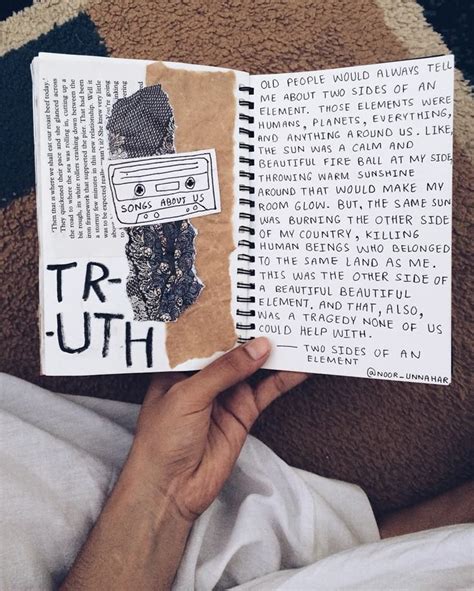 'Then that is where we shall eat our roast beef today.'
They quickened their pace and she glanced across
the road to where the sea was rolling in, cutting up a
bit rough, its white rollers crashing down between the
iron framework that supported the pier. That had been
a stormy few minutes in this new relationship. Well it
was to be expected really
SONGS ABOUT US
TR-
-UTH
OLD PEOPLE WOULD ALWAYS TELL
ME ABOUT TWO SIDES OF AN
ELEMENT. THOSE ELEMENTS WERE
HUMANS, PLANETS, EVERYTHING,
AND ANYTHING AROUND US. LIKE,
THE SUN WAS A CALM AND
BEAUTIFUL FIRE BALL AT MY SIDE,
THROWING WARM SUNSHINE
AROUND THAT WOULD MAKE MY
ROOM GLOW. BUT, THE SAME SUN
WAS BURNING THE OTHER SIDE
OF MY COUNTRY, KILLING
HUMAN BEINGS WHO BELONGED
TO THE SAME LAND AS ME.
THIS WAS THE OTHER SIDE OF
A BEAUTIFUL BEAUTIFUL
ELEMENT. AND THAT, ALSO,
WAS A TRAGEDY NONE OF US
COULD HELP WITH.
—— TWO SIDES OF AN
ELEMENT
@NOOR_UNNAHAR